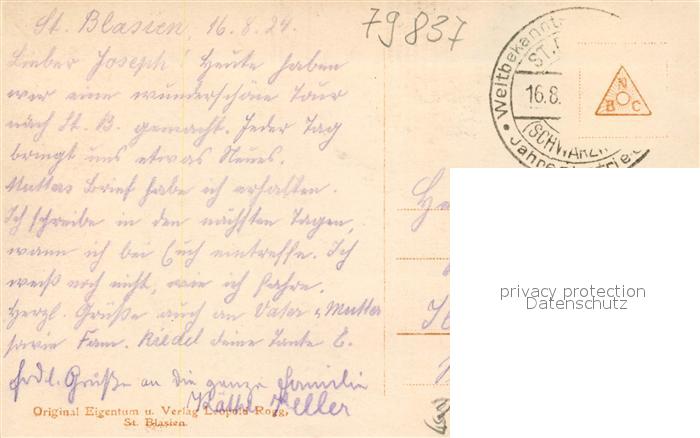 St. Blasien, 16.8.24.
79837
Lieber Joseph! Heute haben
wir eine wunderschöne Tour
nach St. B. gemacht. Jeder Tag
bringt uns etwas Neues.
Mutters Brief habe ich erhalten.
Ich schreibe in den nächsten Tagen,
wann ich bei Euch eintreffe. Ich
weiß noch nicht, wie ich fahre.
Herzl. Grüße auch an Vater u. Mutter
sowie Fam. Riedel deine Tante E.
Frdl. Grüße an die ganze Familie
Käthe Keller
Original Eigentum u. Verlag Leopold Rogg,
St. Blasien
Weltbekannt
ST.
16.8.
(SCHWARZW
Jahresbetrieb
N
B C
privacy protection
Datenschutz